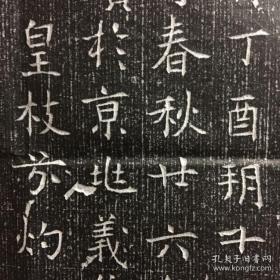 丁酉朔十
春秋廿六
於亰兆義
皇枝灼
孔夫子旧书网